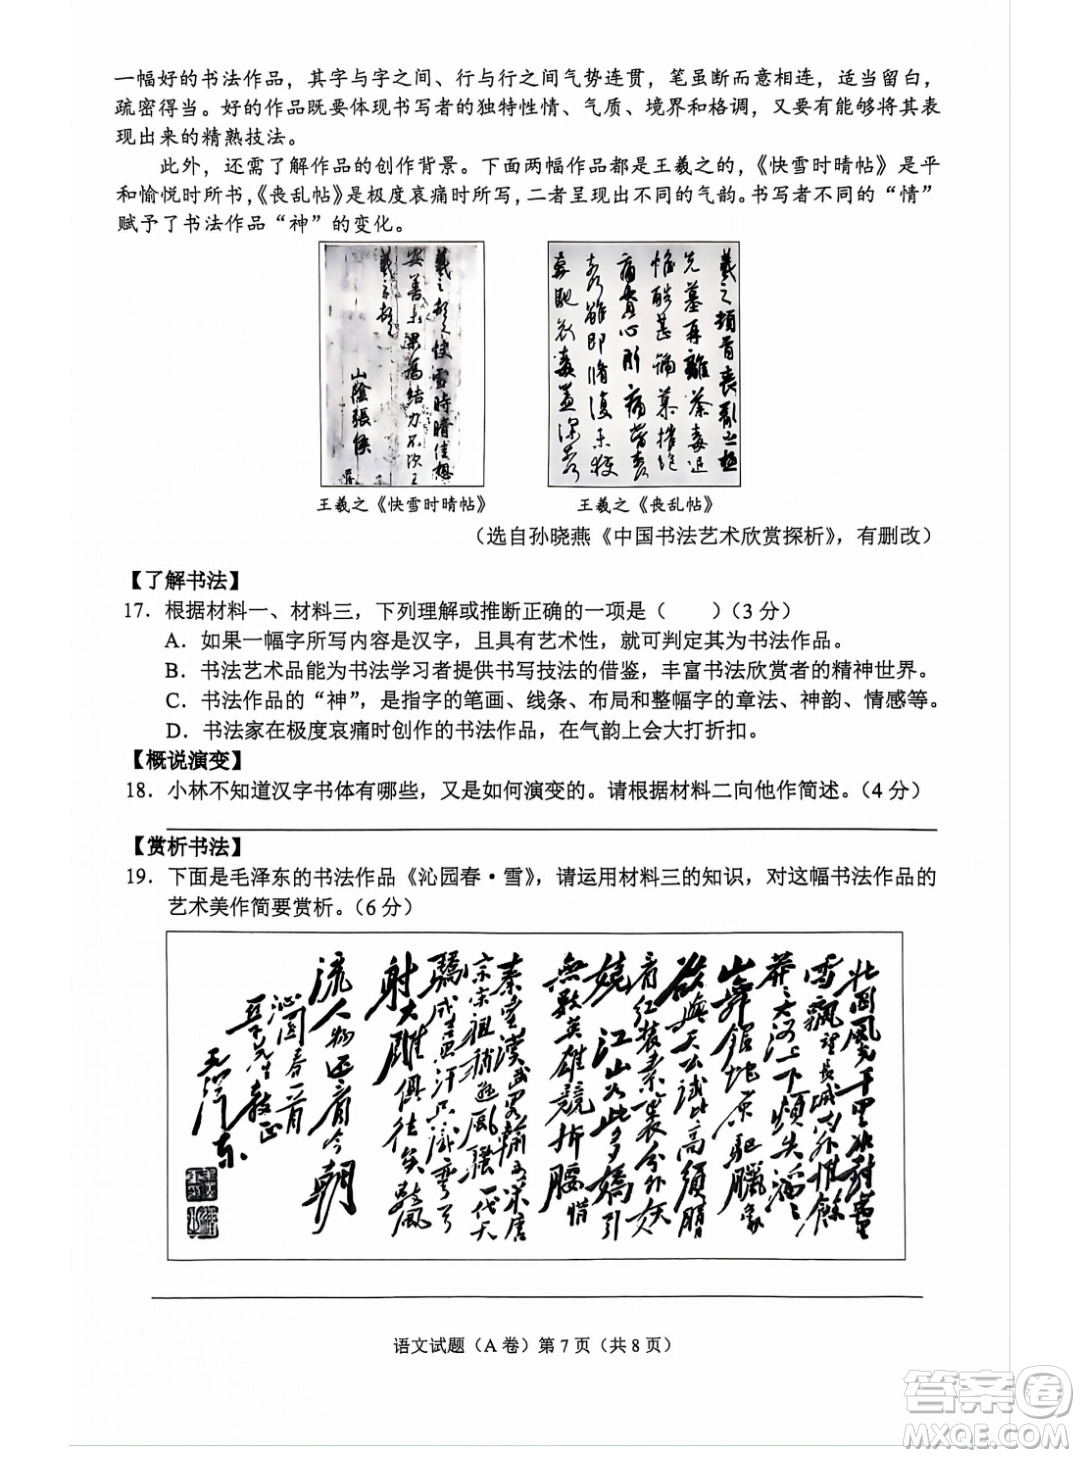 一幅好的书法作品，其字与字之间、行与行之间气势连贯，笔虽断而意相连，适当留白，
疏密得当。好的作品既要体现书写者的独特性情、气质、境界和格调，又要有能够将其表
现出来的精熟技法。
此外，还需了解作品的创作背景。下面两幅作品都是王羲之的，《快雪时晴帖》是平
和愉悦时所书，《丧乱帖》是极度哀痛时所写，二者呈现出不同的气韵。书写者不同的“情”
赋予了书法作品“神”的变化。
羲之顿首快雪時晴佳想
安善未果為結力不次王
羲之頓首
山陰張侯
羲之頓首喪亂之極
先墓再離荼毒追
惟酷甚號慕摧絕
痛貫心肝痛當奈
王羲之《快雪时晴帖》
王羲之《丧乱帖》
（选自孙晓燕《中国书法艺术欣赏探析》，有删改）
【了解书法】
17．根据材料一、材料三，下列理解或推断正确的一项是（　　）（3 分）
A．如果一幅字所写内容是汉字，且具有艺术性，就可判定其为书法作品。
B．书法艺术品能为书法学习者提供书写技法的借鉴，丰富书法欣赏者的精神世界。
C．书法作品的“神”，是指字的笔画、线条、布局和整幅字的章法、神韵、情感等。
D．书法家在极度哀痛时创作的书法作品，在气韵上会大打折扣。
【概说演变】
18．小林不知道汉字书体有哪些，又是如何演变的。请根据材料二向他作简述。（4 分）
【赏析书法】
19．下面是毛泽东的书法作品《沁园春·雪》，请运用材料三的知识，对这幅书法作品的
艺术美作简要赏析。（6 分）
北國風光千里冰封萬里
雪飄望長城内外惟餘
莽莽大河上下頓失滔滔
山舞銀蛇原馳臘象
欲與天公試比高須晴
看红装素裹分外妖
嬈江山如此多嬌引
無數英雄競折腰惜
秦皇漢武略輸文采唐
宗宋祖稍遜風騷一代天
驕成吉思汗只識彎弓
射大雕俱往矣數風
流人物還看今朝
沁園春一首
毛澤東
语文试题（A 卷）第 7 页（共 8 页）
答案卷
MXQE.COM